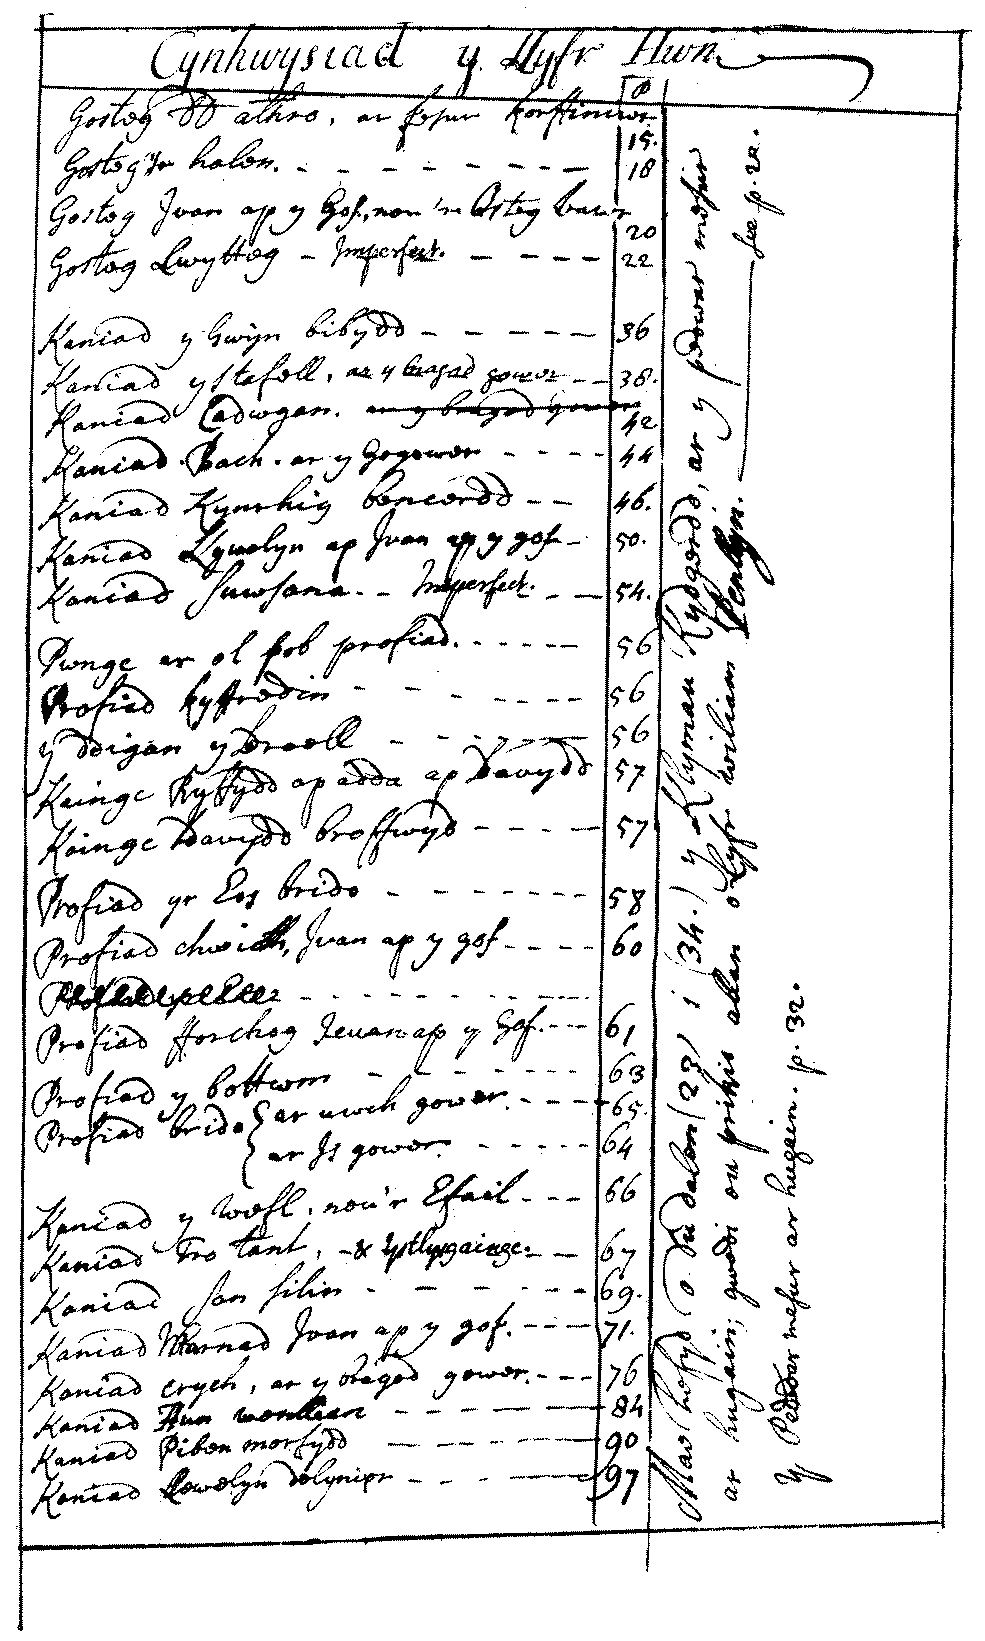 Cynhwysiad y Llyfr Hwn.
p
Gosteg DD athro, ar fesur korffiniwr 15.
Gosteg Yr halen. - - - - - - - - 18
Gosteg Ivan ap y Gof, neu'r Osteg vawr 20
Gosteg Lwytteg - Imperfect. - - - - 22
Kaniad y Gwyn bibydd - - - - - 36
Kaniad ystefell, ar y bragod gower - - 38.
Kaniad Cadwgan. ar y bragod gower 42
Kaniad Bach. ar y Gogower - - - - 44
Kaniad Kynrhig bencerdd - - 46.
Kaniad Llywelyn ap Ivan ap y gof - 50.
Kaniad Suwsana. - - Imperfect. - - 54.
Pwnge ar ol pob profiad. - - - - - 56
Profiad kyffredin - - - - - - 56
y ddigan y Droell - - - - - 56
Kainge Ryffydd ap adda ap Davydd 57
Kainge Davydd broffwyd - - - - 57
Profiad yr Eos brido - - - - - 58
Profiad chwith, Ivan ap y gof - - - - 60
Profiad fforchog Ieuan ap y Gof. - - - 61
Profiad y bottwm - - - - - - - 63
Profiad brido { ar uwch gower. - - - - 65.
ar Is gower. - - - - - 64
Kaniad y wefl, neu'r Efail - - - 66
Kaniad Tro tant, - & ystlysgainge. - - 67
Kaniad San silin - - - - - - 69.
Kaniad Marnad Ivan ap y gof. - - - 71.
Kaniad crych, ar y bragod gower. - - - 76
Kaniad Hun wenllian - - - - - 84
Kaniad Pibau morfydd - - - - 90
Kaniad Llewelyn delynior - - - - 97
Mae hefyd o Du dalen (23) i (34.) y Klymau Kydgerdd, ar y pedwar mesur
ar hugain; gwedi eu prikio allan o Lyfr wiliam Penllyn. - see p. 22.
Y Pedwar mesur ar hugain. p. 32.